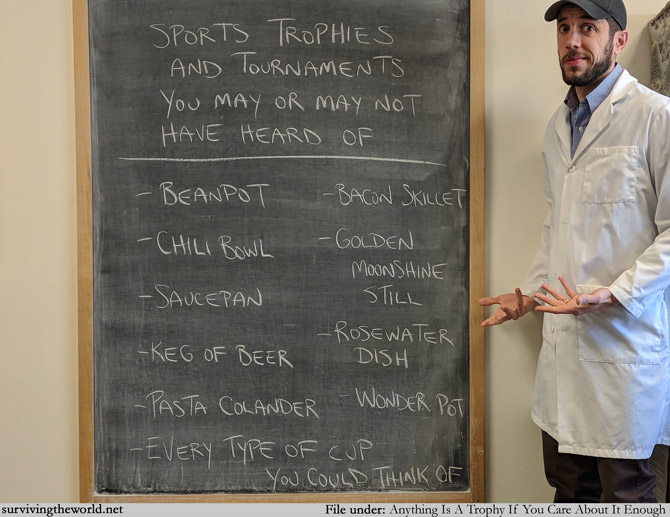 SPORTS TROPHIES
AND TOURNAMENTS
YOU MAY OR MAY NOT
HAVE HEARD OF
- BEANPOT
- CHILI BOWL
- SAUCEPAN
- KEG OF BEER
- PASTA COLANDER
- BACON SKILLET
- GOLDEN
MOONSHINE
STILL
- ROSEWATER
DISH
- WONDER POT
- EVERY TYPE OF CUP
YOU COULD THINK OF
survivingtheworld.net
File under: Anything Is A Trophy If You Care About It Enough